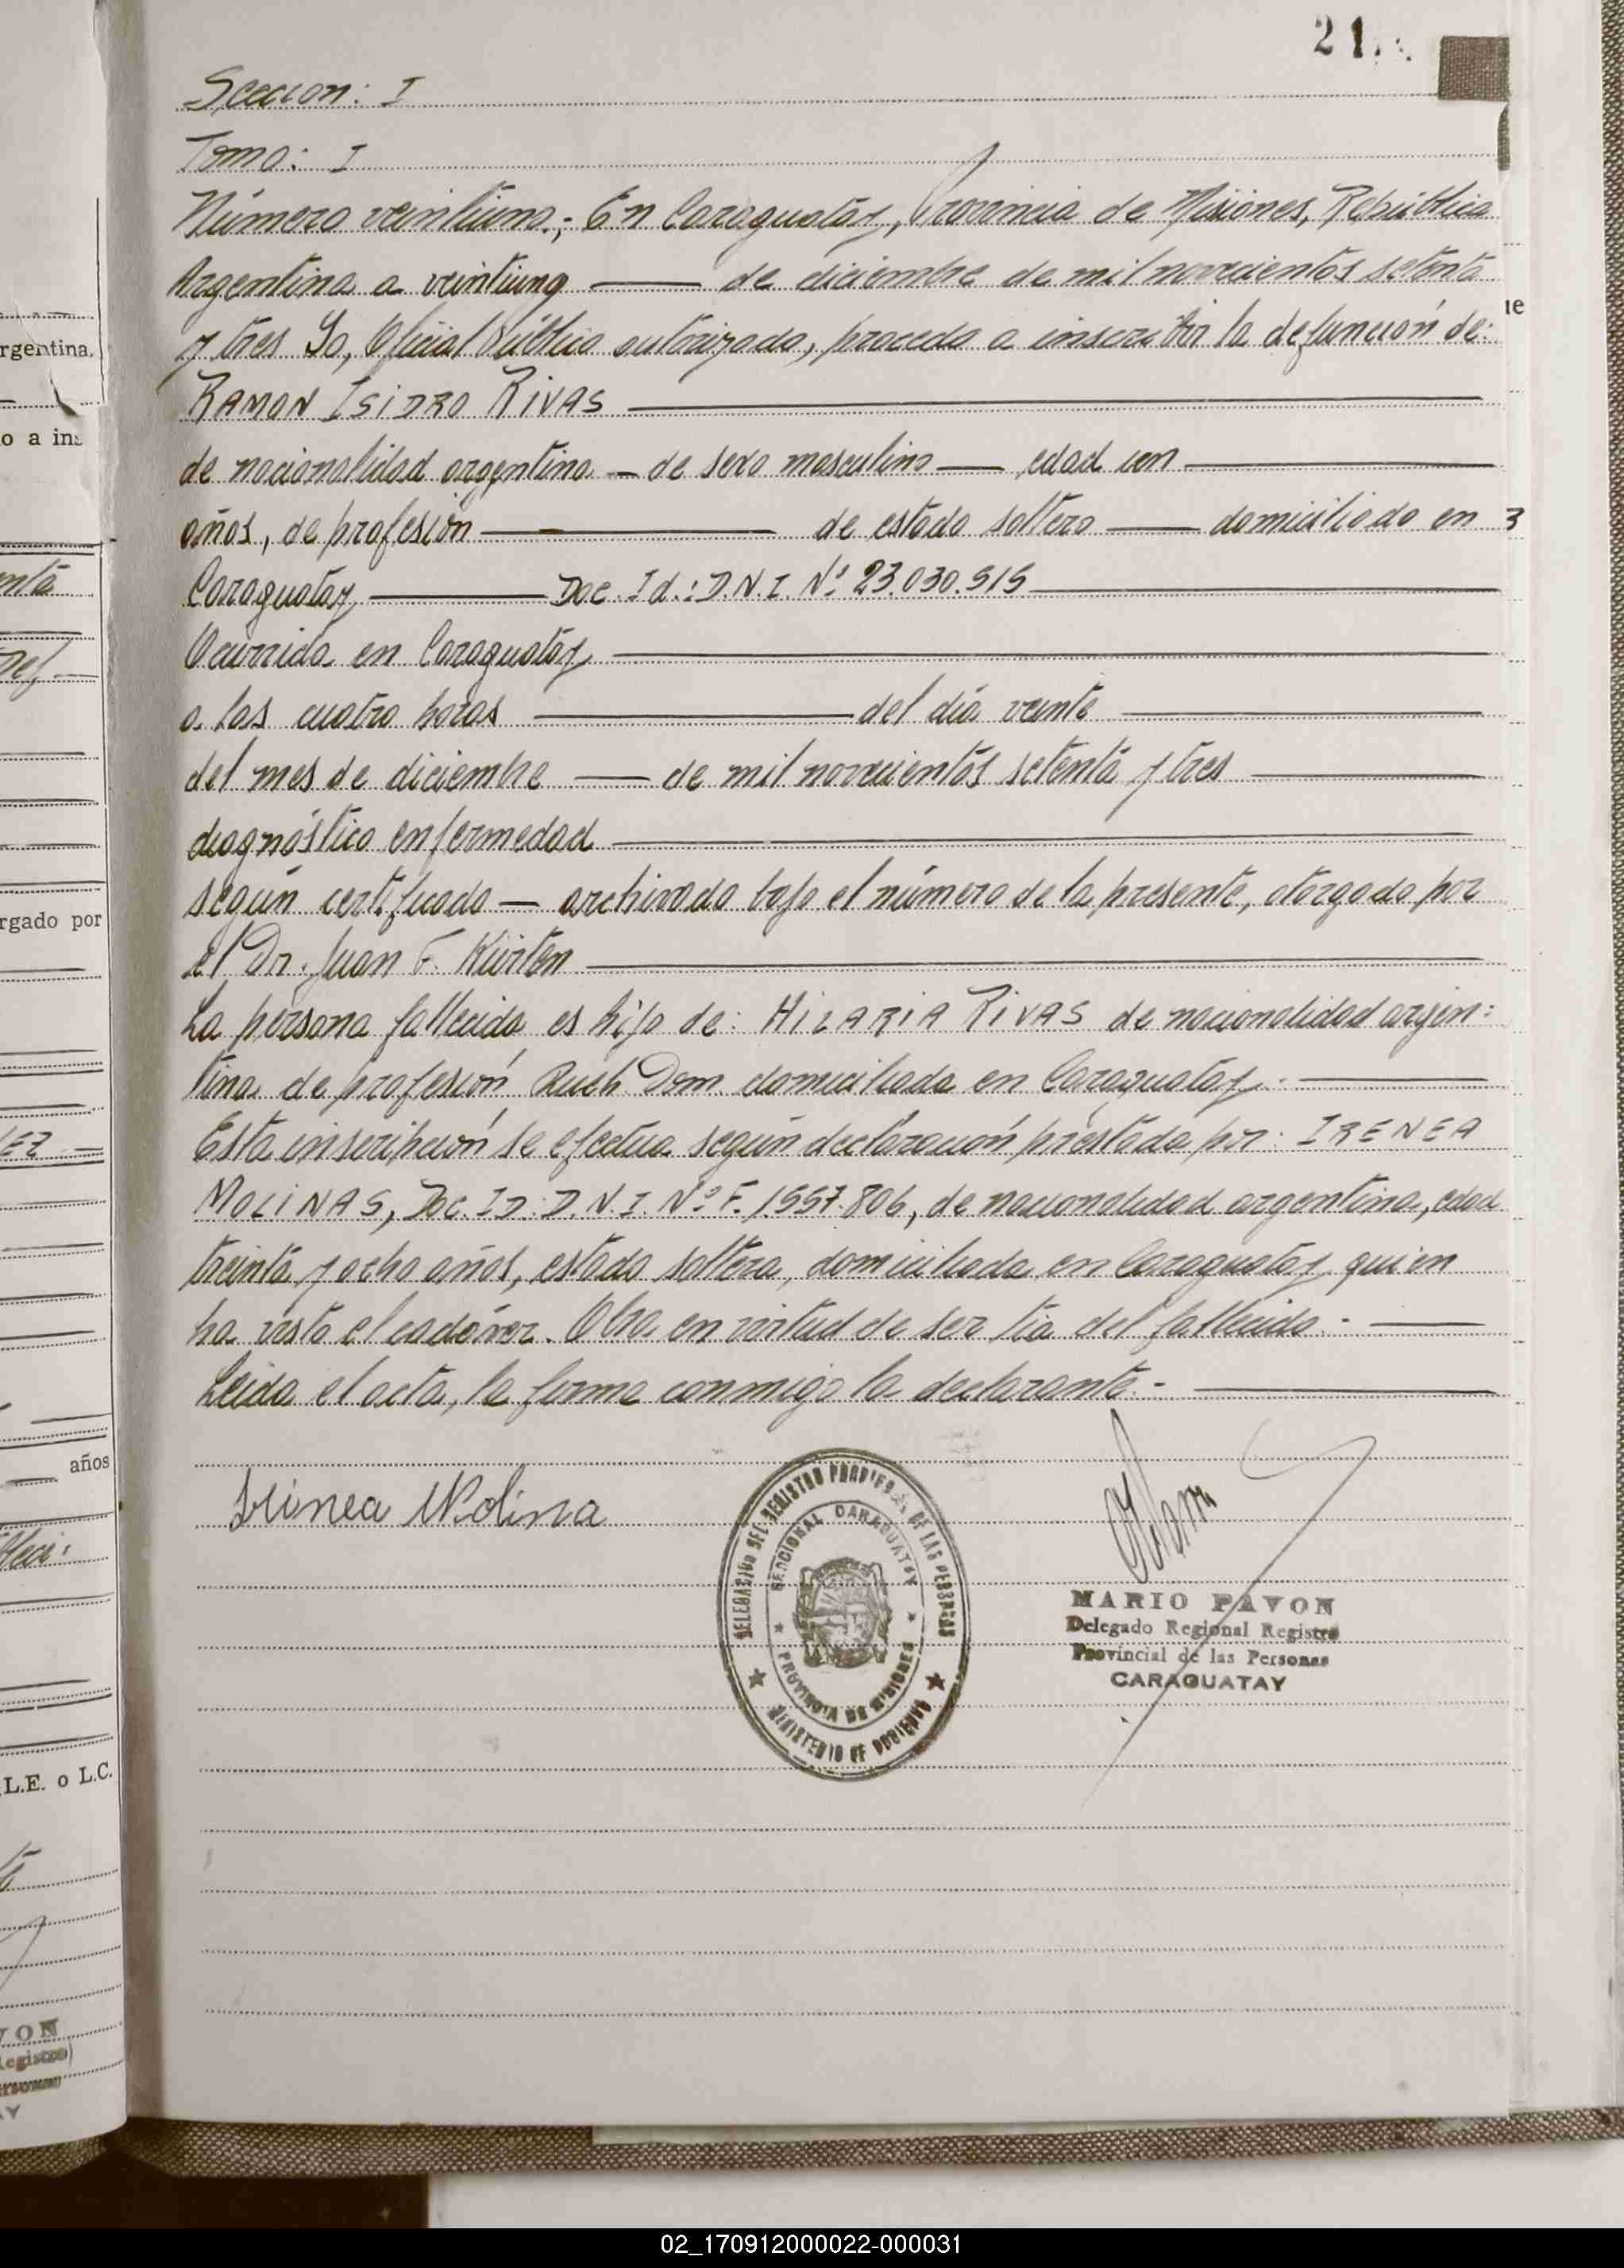 21
Sección: I
Tomo: I
Número veintiuno.; En Caraguatay, Provincia de Misiones, República
Argentina a veintiuno — de diciembre de mil novecientos setenta
y tres Yo, Oficial Público autorizado, procedo a inscribir la defunción de:
RAMON ISIDRO RIVAS —
de nacionalidad argentina — de sexo masculino — edad un —
años, de profesión — de estado soltero — domiciliado en
Caraguatay — Doc. Id.: D.N.I. Nº 23.030.515 —
Ocurrida en Caraguatay —
a las cuatro horas — del día veinte —
del mes de diciembre — de mil novecientos setenta y tres —
diagnóstico enfermedad —
según certificado — archivado bajo el número de la presente, otorgado por
el Dr. Juan F. Kürten —
La persona fallecida es hijo de: HILARIA RIVAS de nacionalidad argen:
tina de profesión Dom. domiciliada en Caraguatay. —
Esta inscripción se efectua según declaración prestada por: IRENEA
MOLINAS, Doc. ID: D.N.I. Nº F. 1.557.806, de nacionalidad argentina, edad
treinta y ocho años, estado soltera, domiciliada en Caraguatay, quien
ha visto el cadáver. Obra en virtud de ser tía del fallecido.- —
Leída el acta, la firma conmigo la declarante.- —
Irinea Molina
DELEGADO DEL REGISTRO PROVINCIAL DE LAS PERSONAS
SECCIONAL CARAGUATAY
PROVINCIA DE MISIONES
MINISTERIO DE GOBIERNO
MARIO PAVON
Delegado Regional Registro
Provincial de las Personas
CARAGUATAY
rgentina.
rgado por
años
L.E. o L.C.
02_170912000022-000031